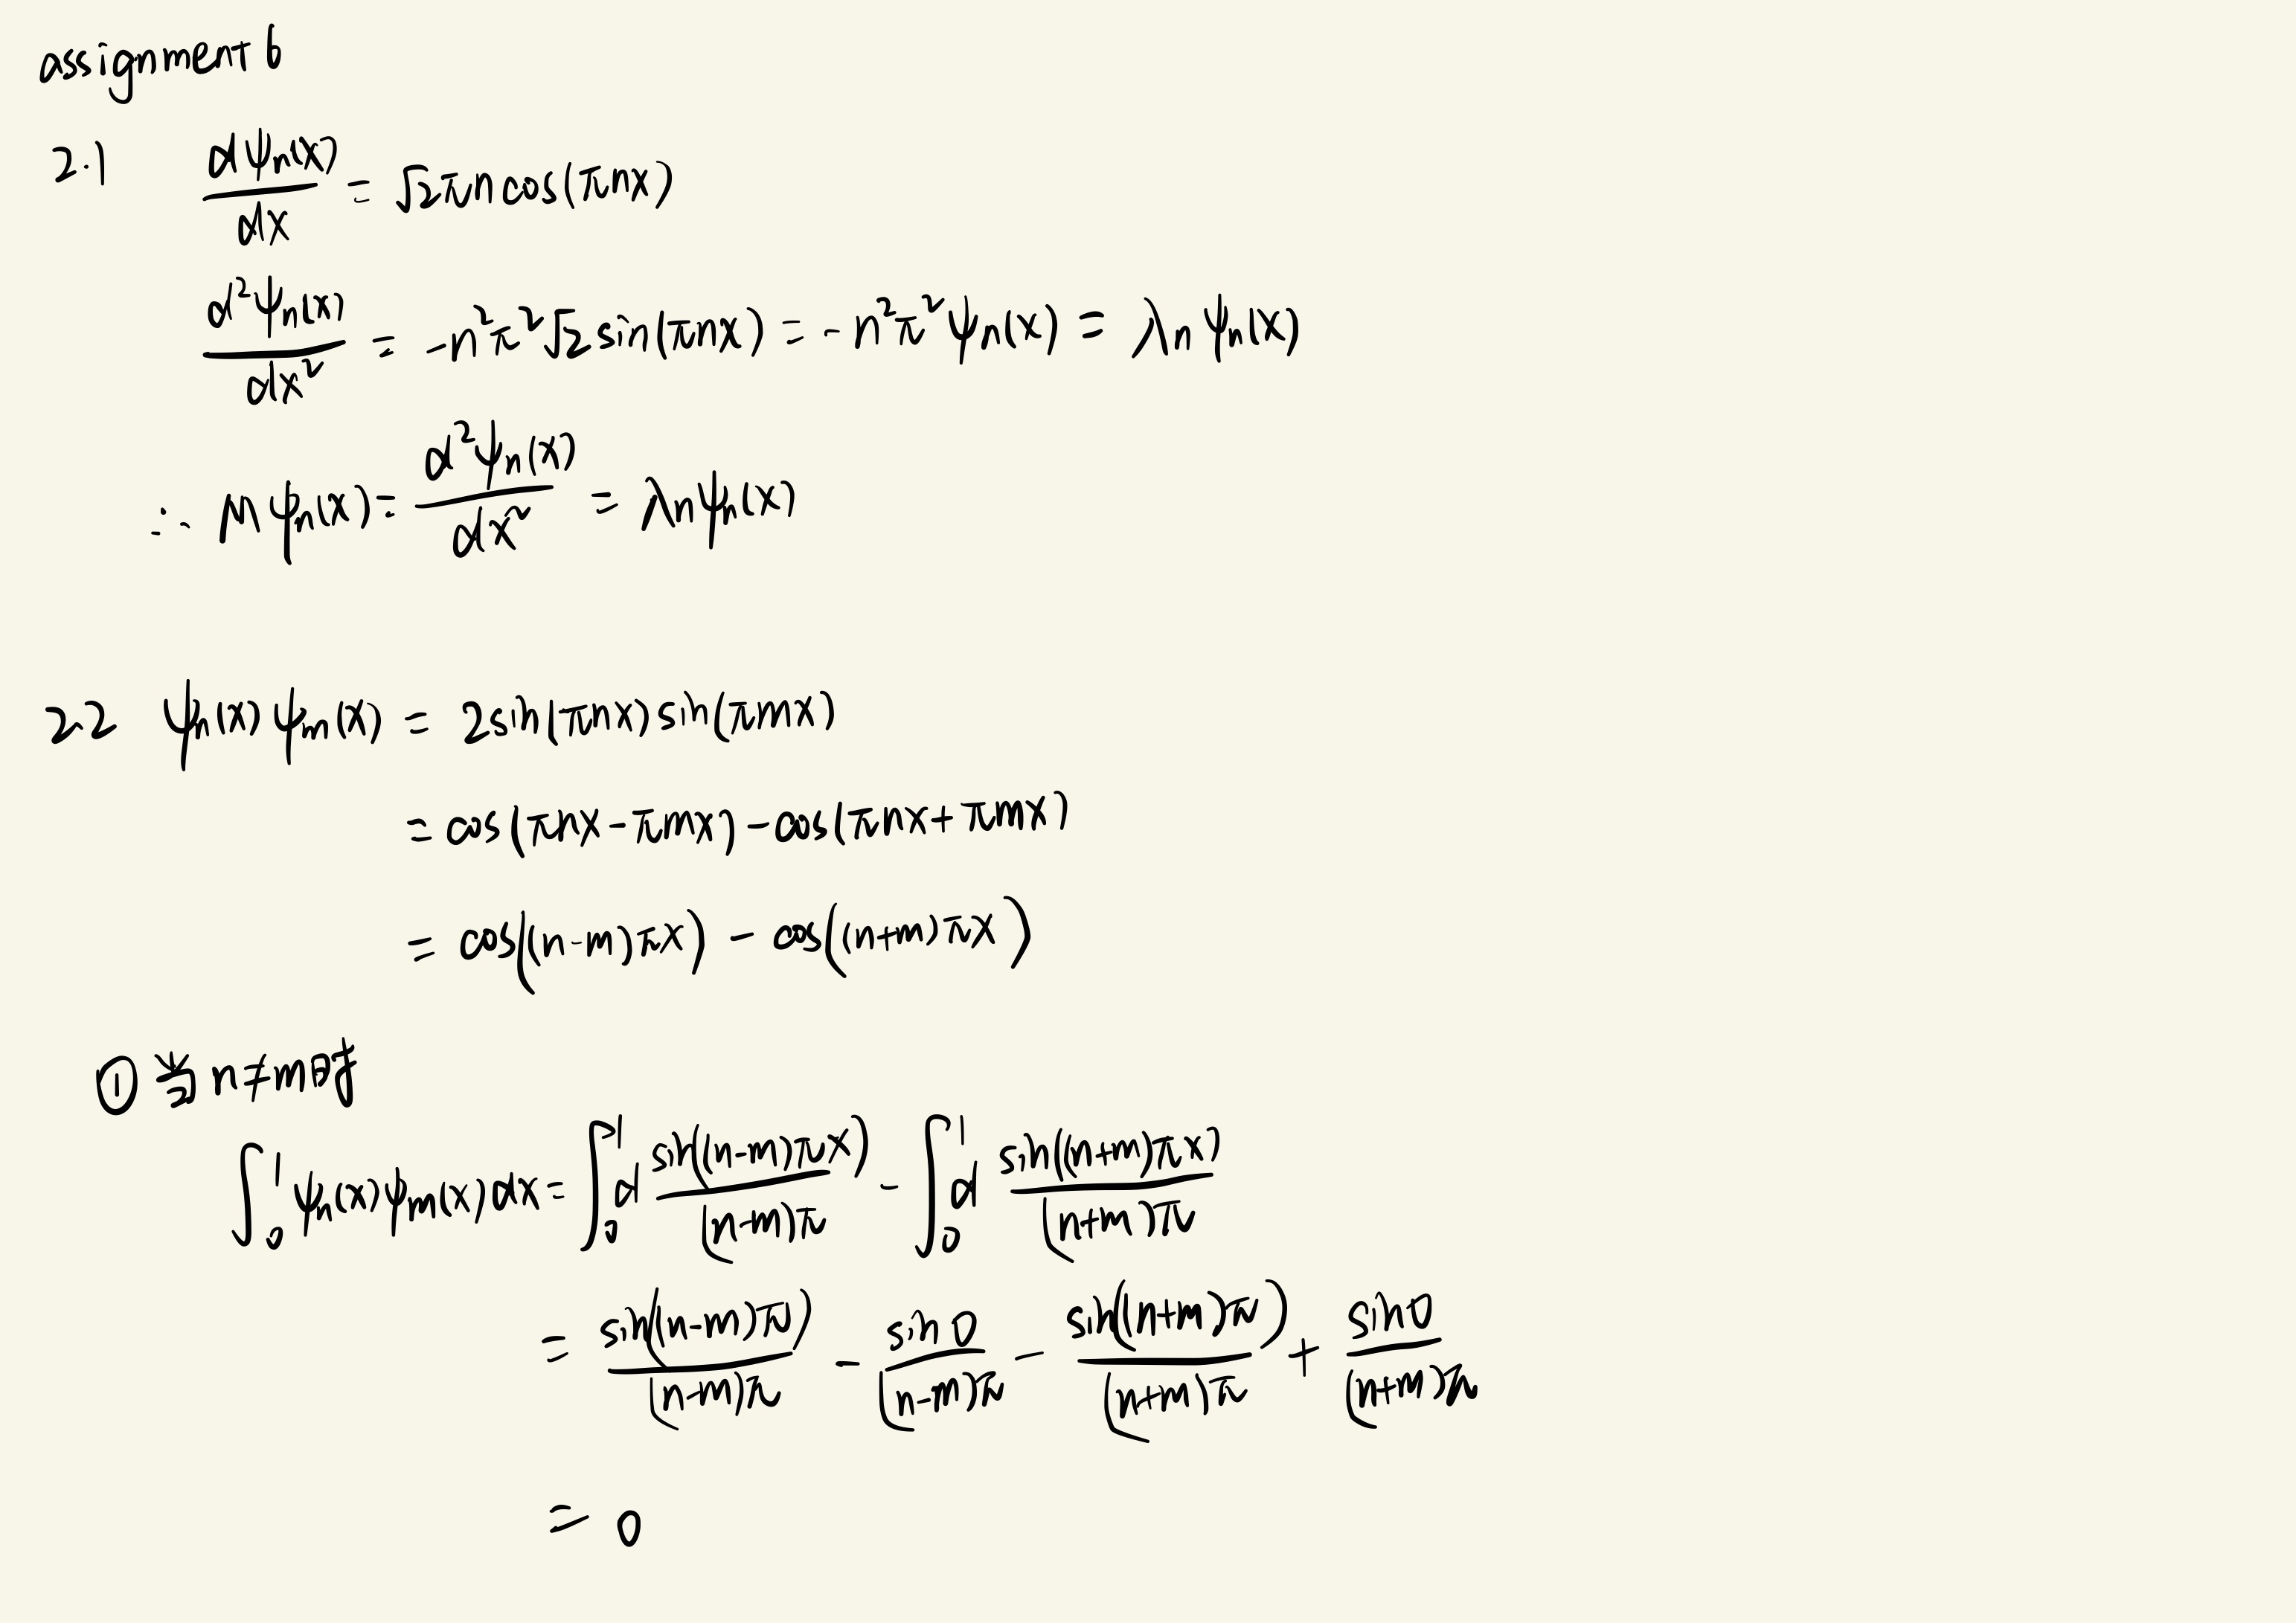 assignment 6
2.1 dψₙ(x)/dx = √2πn cos(πnx)
d²ψₙ(x)/dx² = -n²π²√2 sin(πnx) = -n²π²ψₙ(x) = λₙψₙ(x)
∴ Mψₙ(x) = d²ψₙ(x)/dx² = λₙψₙ(x)
2.2 ψₙ(x)ψₘ(x) = 2sin(πnx)sin(πmx)
= cos(πnx-πmx)-cos(πnx+πmx)
= cos((n-m)πx) - cos((n+m)πx)
① 当n≠m时
∫₀¹ ψₙ(x)ψₘ(x)dx = ∫₀¹ d sin((n-m)πx)/(n-m)π - ∫₀¹ d sin((n+m)πx)/(n+m)π
= sin((n-m)π)/(n-m)π - sin0/(n-m)π - sin((n+m)π)/(n+m)π + sin0/(n+m)π
= 0